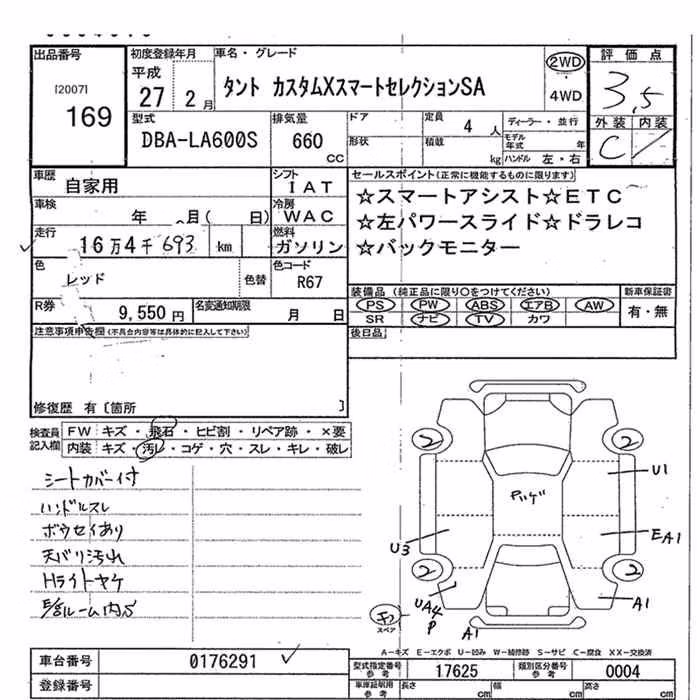 出品番号
[2007]
169
初度登録年月
平成
27 2 月
車名・グレード
タント カスタムXスマートセレクションSA
2WD
4WD
評価点
3,5
外装 内装
C
型式
DBA-LA600S
排気量
660
CC
ドア
形状
定員
4 人
積載
kg
ディーラー・並行
モデル年式 年
ハンドル 左・右
車歴
自家用
シフト
IAT
車検
年 月( 日)
冷房
WAC
走行
16万4千693 km
燃料
ガソリン
色
レッド
色替
色コード
R67
R券
9,550 円
名変通知期限
月 日
セールスポイント(正常に機能するものに限ります)
☆スマートアシスト☆ETC
☆左パワースライド☆ドラレコ
☆バックモニター
装備品 (純正品に限り○をつけてください)
新車保証書
PS PW ABS エアB AW
SR ナビ TV カワ
有・無
後日品
注意事項申告欄(不具合内容等は具体的に記入して下さい)
修復歴 有〔箇所 〕
検査員記入欄
FW キズ・飛石・ヒビ割・リペア跡・×要
内装 キズ・汚レ・コゲ・穴・スレ・キレ・破レ
シートカバー付
ハンドルスレ
ボウセイあり
天バリ汚れ
Hライトヤケ
2
2
U1
U3
EA1
2
2
UA4
P
A1
A1
スペア
A-キズ E-エクボ U-凹み W-補修跡 S-サビ C-腐食 XX-交換済
車台番号
0176291
登録番号
型式指定番号
参考
17625
類別区分番号
参考
0004
車庫証明用
参考
長さ cm
幅 cm
cm